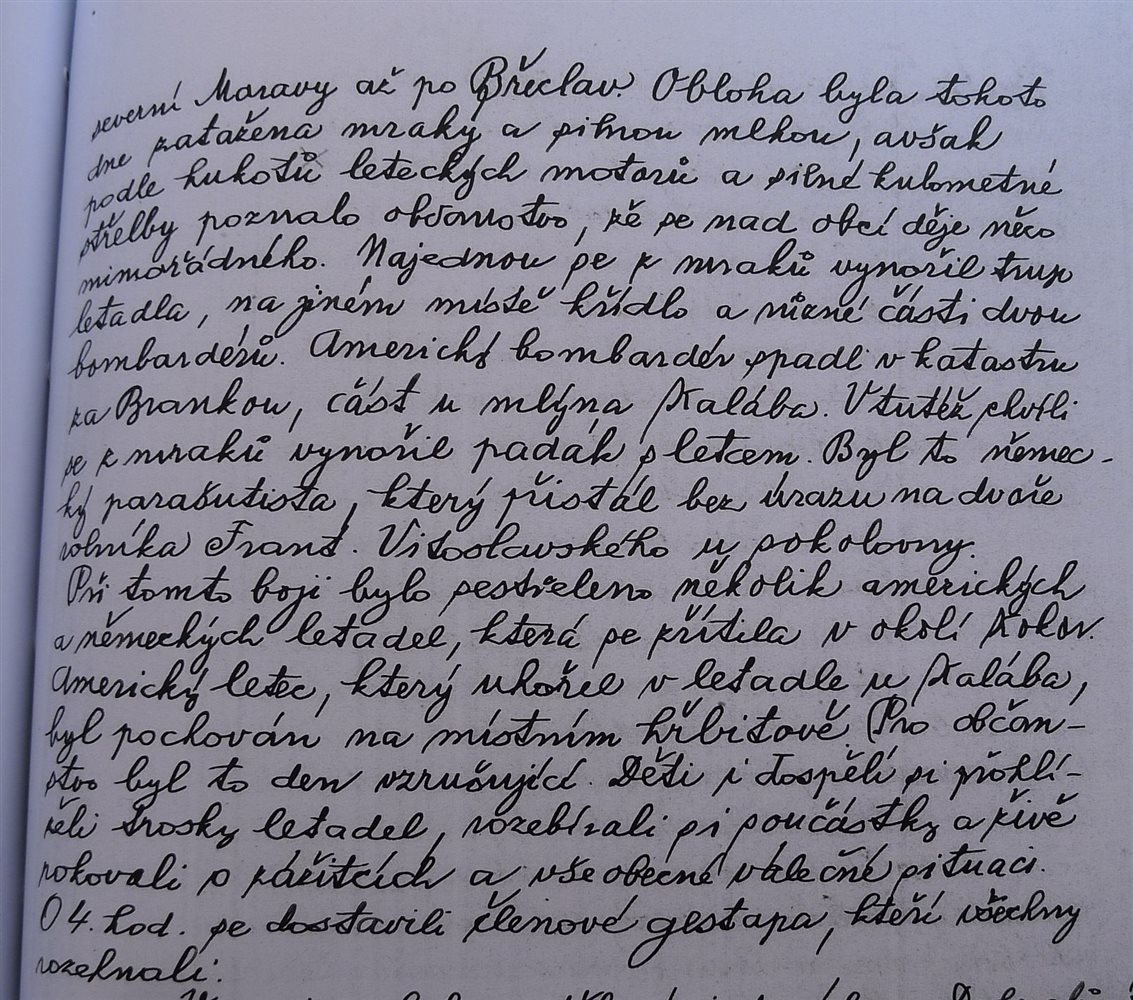 severní Moravy až po Břeclav. Obloha byla tohoto
dne zatažena mraky a silnou mlhou, avšak
podle hukotů leteckých motorů a silné kulometné
střelby poznalo občanstvo, že se nad obcí děje něco
mimořádného. Najednou se z mraků vynořil trup
letadla, na jiném místě křídlo a různé části dvou
bombardérů. Americký bombardér spadl v katastru
za Brankou, část u mlýna Kalába. V tutéž chvíli
se z mraků vynořil padák s letcem. Byl to němec-
ký parašutista, který přistál bez úrazu na dvoře
rolníka Frant. Vitoslavského u sokolovny.
Při tomto boji bylo sestřeleno několik amerických
a německých letadel, která se zřítila v okolí Kokor.
Americký letec, který uhořel v letadle u Kalába,
byl pochován na místním hřbitově. Pro občan-
stvo byl to den vzrušující. Děti i dospělí si prohlí-
želi trosky letadel, rozebírali si součástky a živě
rokovali o zážitcích a všeobecné válečné situaci.
O 4. hod. se dostavili členové gestapa, kteří všechny
rozehnali.